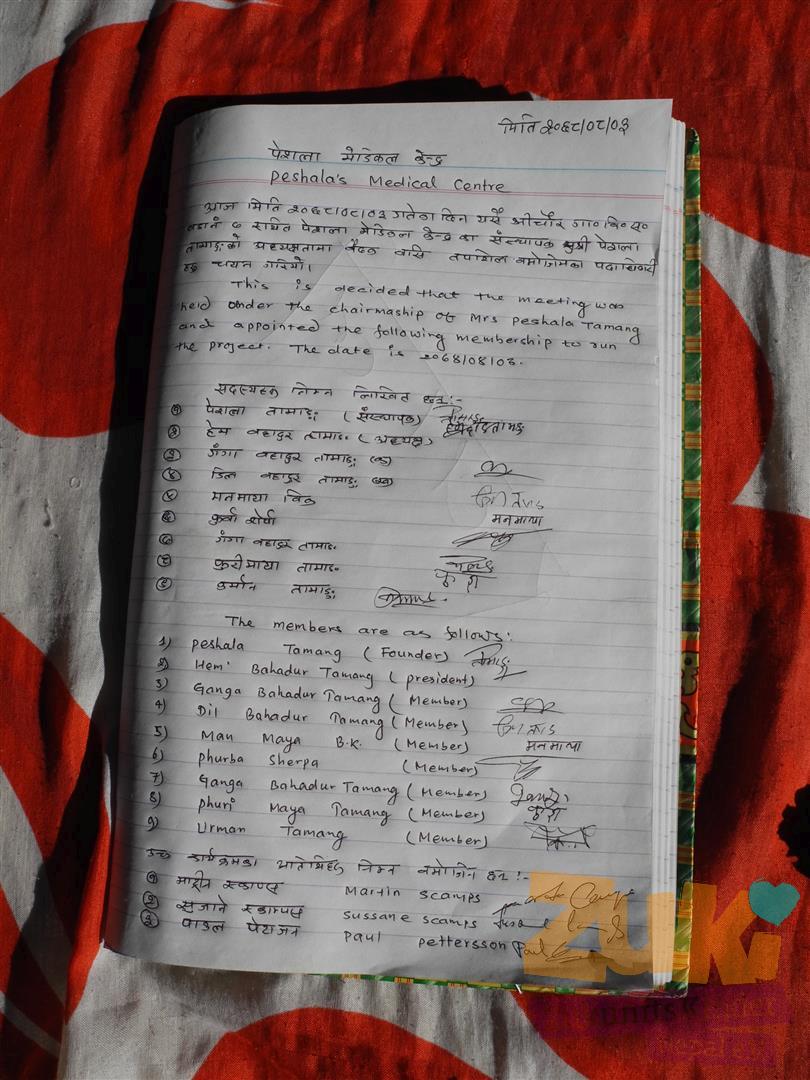 मिति २०६८/०८/०३
पेशला मेडिकल केन्द्र
Peshala's Medical Centre
आज मिति २०६८/०८/०३ गतेका दिन यसै श्रीचौर गा०वि०स०
वडा नं ७ स्थित पेशला मेडिकल केन्द्र का संस्थापक सुश्री पेशला
तामाङको अध्यक्षतामा बैठक बसि तपशिल बमोजिमका पदाधिकारी
हरु चयन गरियो।
This is decided that the meeting was
held under the chairmaship of Mrs Peshala Tamang
and appointed the following membership to run
the project. The date is 2068/08/03.
सदस्यहरु निम्न लिखित छन् :-
१ पेशला तामाङ (संस्थापक)
२ हेम बहादुर तामाङ (अध्यक्ष)
३ गंगा बहादुर तामाङ (क)
४ डिल बहादुर तामाङ (ख)
५ मनमाया वि.क मनमाया
६ फुर्वा शेर्पा
७ गंगा बहादुर तामाङ
८ फुरीमाया तामाङ
९ तामाङ
The members are as follows:
1) Peshala Tamang (Founder)
2) Hem Bahadur Tamang (president)
3) Ganga Bahadur Tamang (Member)
4) Dil Bahadur Tamang (Member)
5) Man Maya B.K. (Member) मनमाया
6) phurba Sherpa (Member)
7) Ganga Bahadur Tamang (Member)
8) phuri Maya Tamang (Member)
9) Urman Tamang (Member)
उक्त कार्यक्रमका अतिथिहरु निम्न बमोजिम छन् :-
१ मार्टीन स्काम्प्स Martin scamps
२ सुजाने स्काम्प्स Sussane scamps
३ पाउल Paul Pettersson
ZUKI